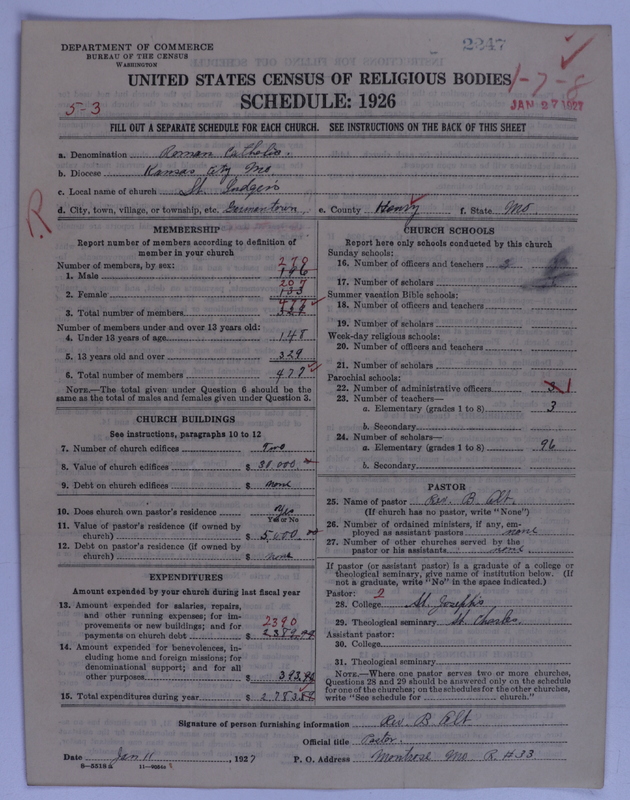 2247
DEPARTMENT OF COMMERCE
BUREAU OF THE CENSUS
WASHINGTON
UNITED STATES CENSUS OF RELIGIOUS BODIES
1-7-8
SCHEDULE: 1926
5-3
JAN 27 1927
FILL OUT A SEPARATE SCHEDULE FOR EACH CHURCH. SEE INSTRUCTIONS ON THE BACK OF THIS SHEET
a. Denomination Roman Catholic.
b. Diocese Kansas City Mo.
c. Local name of church St. Ludger's
d. City, town, village, or township, etc. Germantown, e. County Henry f. State Mo.
R
MEMBERSHIP
Report number of members according to definition of
member in your church
Number of members, by sex:
270
1. Male
207
2. Female 133
477
3. Total number of members
Number of members under and over 13 years old:
4. Under 13 years of age 148
5. 13 years old and over 329
6. Total number of members 477
NOTE.—The total given under Question 6 should be
same as the total of males and females given under Question 3.
CHURCH BUILDINGS
See instructions, paragraphs 10 to 12
7. Number of church edifices Two
8. Value of church edifices $ 38,000.
9. Debt on church edifices $ None
10. Does church own pastor's residence Yes
Yes or No
11. Value of pastor's residence (if owned by
church) $ 5,000.00
12. Debt on pastor's residence (if owned by
church) $ None
EXPENDITURES
Amount expended by your church during last fiscal year
13. Amount expended for salaries, repairs,
and other running expenses; for im-
provements or new buildings; and for
payments on church debt $ 2390
2389.94
14. Amount expended for benevolences, in-
cluding home and foreign missions; for
denominational support; and for all
other purposes $ 393.94
15. Total expenditures during year $ 2783.88
CHURCH SCHOOLS
Report here only schools conducted by this church
Sunday schools:
16. Number of officers and teachers
17. Number of scholars
Summer vacation Bible schools:
18. Number of officers and teachers
19. Number of scholars
Week-day religious schools:
20. Number of officers and teachers
21. Number of scholars
Parochial schools:
22. Number of administrative officers 3 1
23. Number of teachers—
a. Elementary (grades 1 to 8) 3
b. Secondary
24. Number of scholars—
a. Elementary (grades 1 to 8) 96
b. Secondary
PASTOR
25. Name of pastor Rev. B. Alt.
(If church has no pastor, write "None")
26. Number of ordained ministers, if any, em-
ployed as assistant pastors none
27. Number of other churches served by the
pastor or his assistants none.
If pastor (or assistant pastor) is a graduate of a college or
theological seminary, give name of institution below. (If
not a graduate, write "No" in the space indicated.)
Pastor: 2
28. College St. Joseph's
29. Theological seminary St. Charles.
Assistant pastor:
30. College
31. Theological seminary
NOTE.—Where one pastor serves two or more churches,
Questions 28 and 29 should be answered only on the schedule
for one of the churches; on the schedules for the other churches,
write "See schedule for church."
Signature of person furnishing information Rev. B. Alt
Official title Pastor.
Date Jan 11, 1927 P. O. Address Montrose Mo. R. # 33
8-5518 a